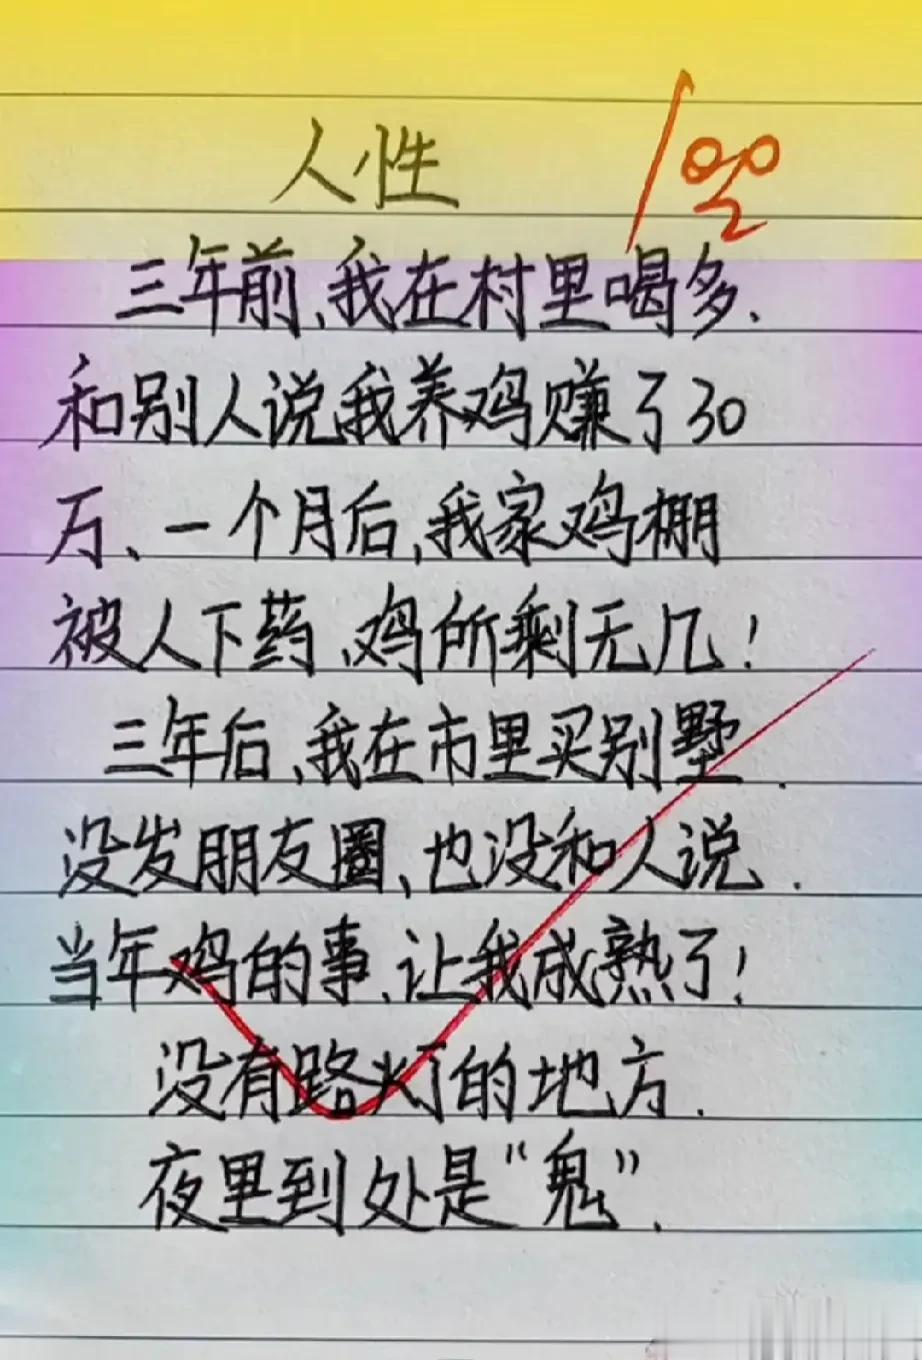 人性
100
三年前、我在村里喝多.
和别人说我养鸡赚了30
万、一个月后、我家鸡棚
被人下药、鸡所剩无几!
三年后、我在市里买别墅.
没发朋友圈、也没和人说.
当年鸡的事、让我成熟了!
没有路灯的地方.
夜里到处是“鬼”.